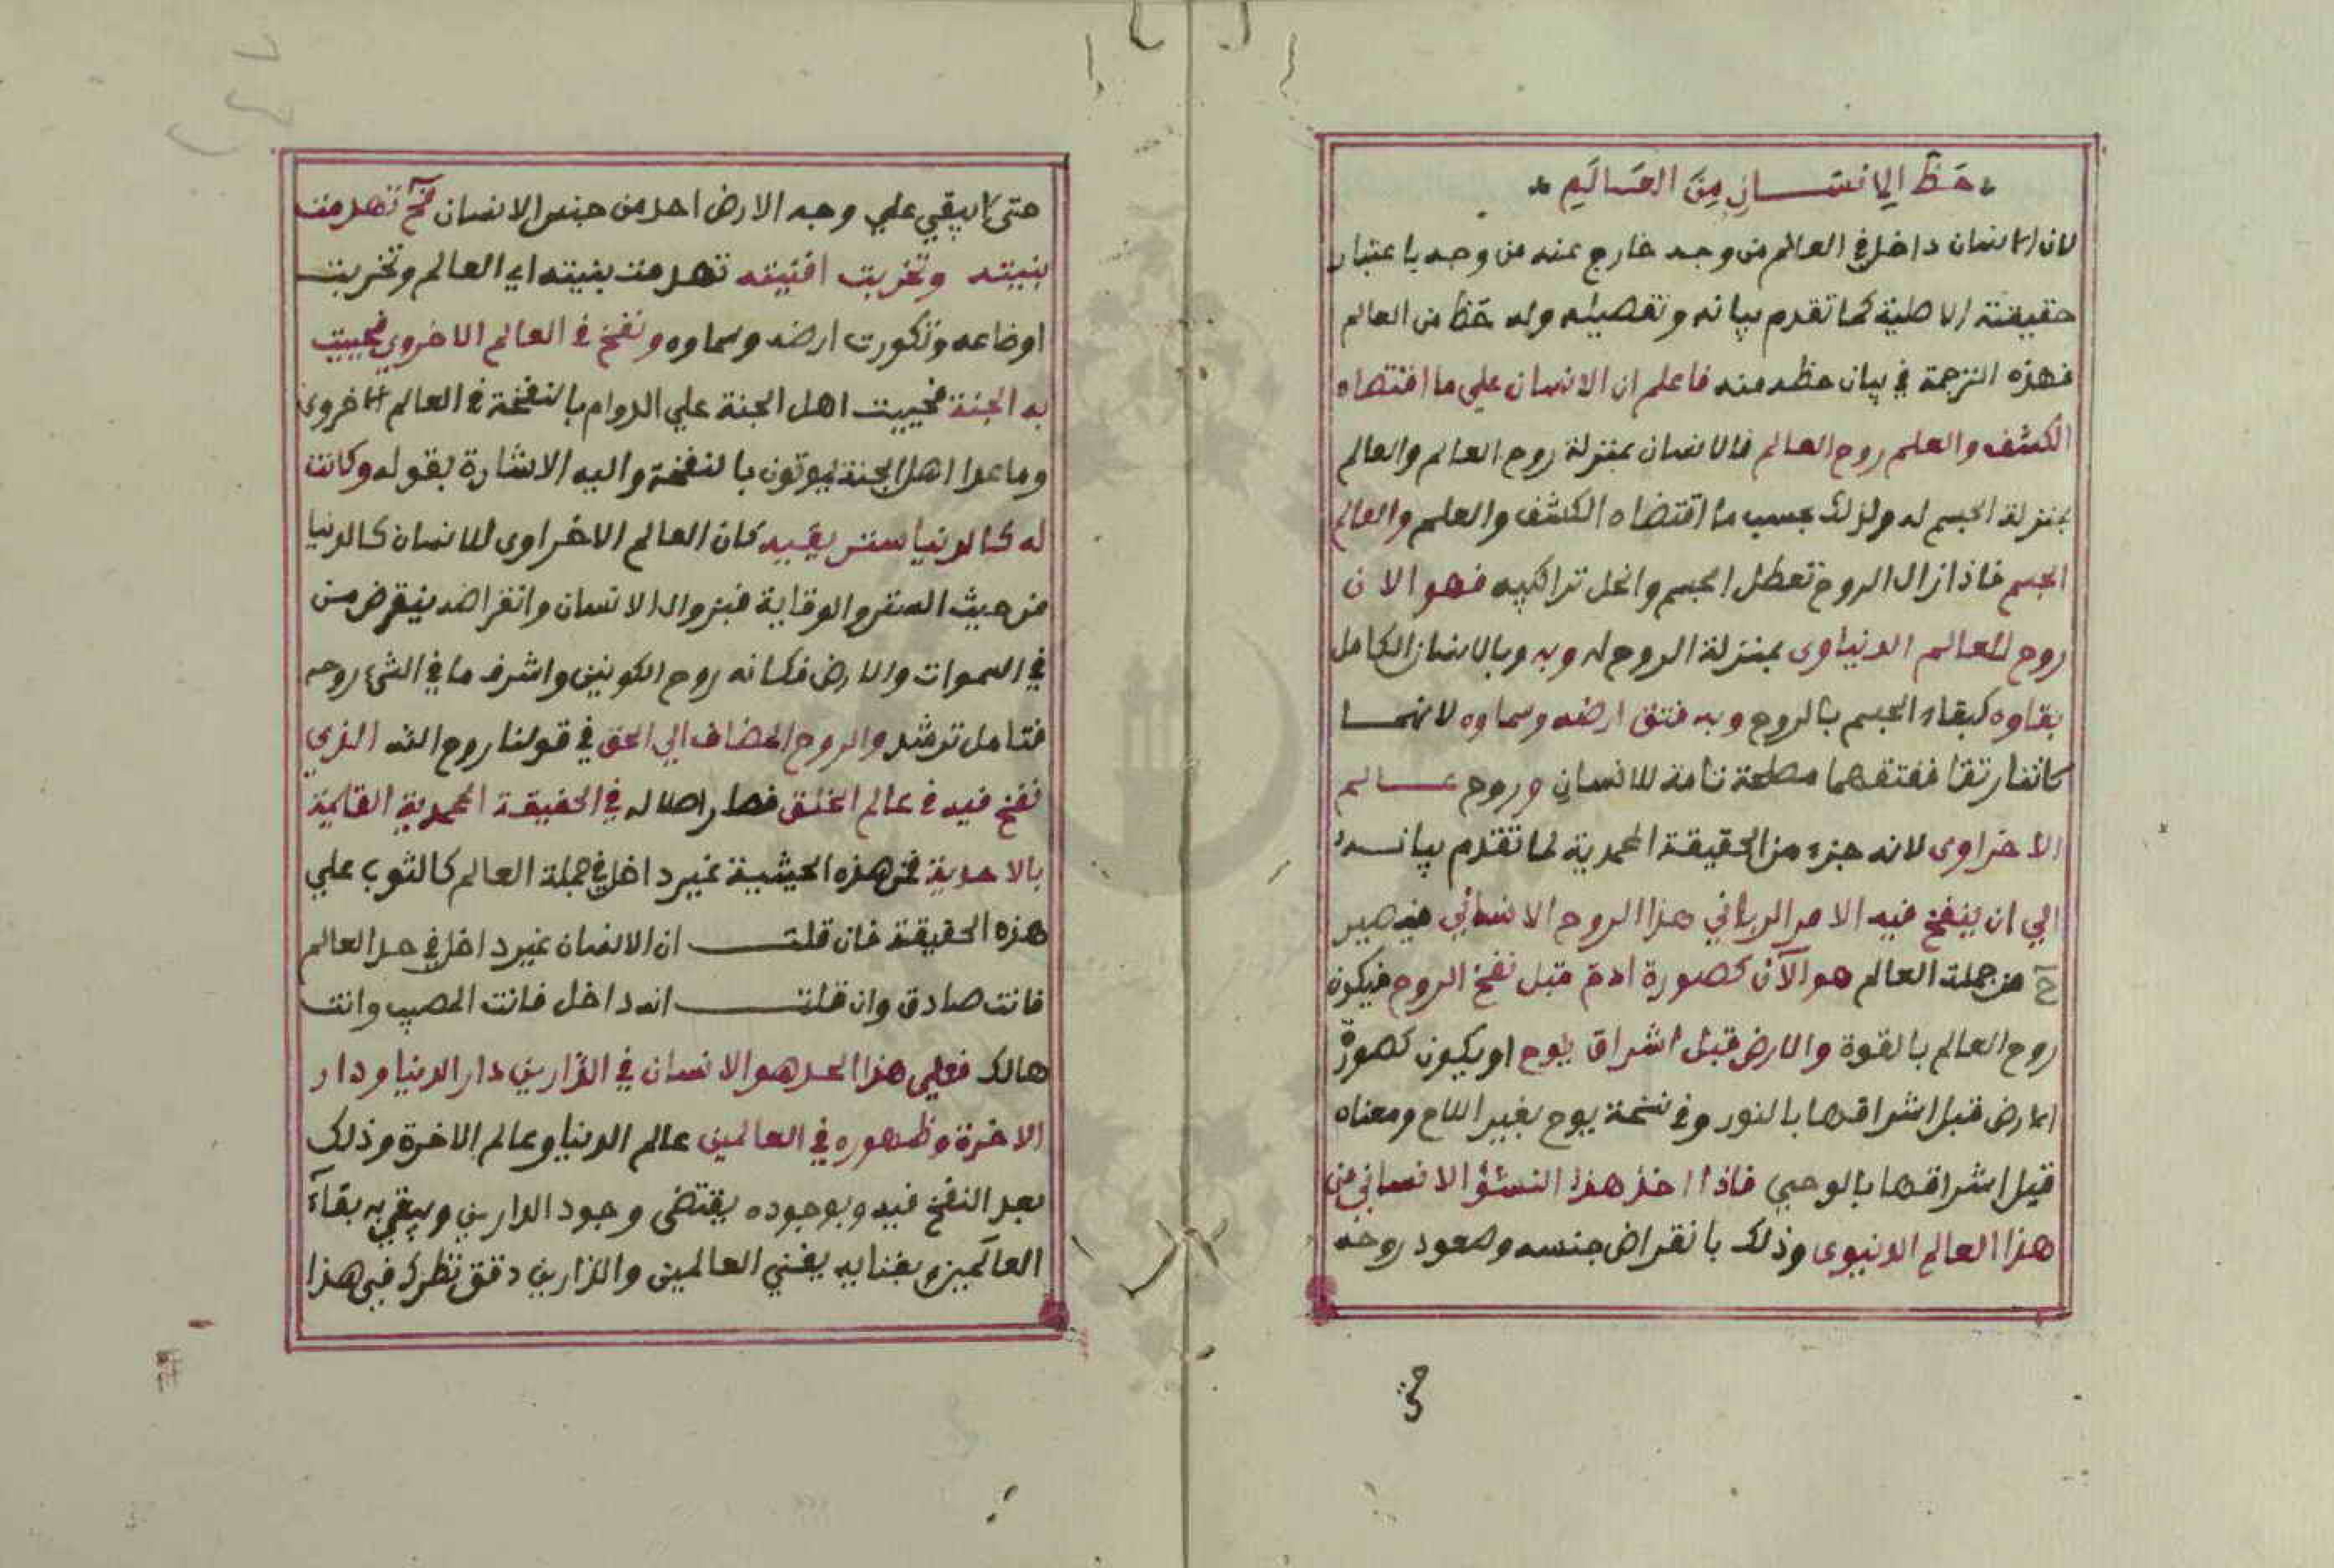 حَظّ الانسَان مِنَ العَالَمِ
لان الانسان داخل في العالم من وجه خارج عنه من وجه باعتبار
حقيقته الاصلية كما تقدم بيانه وتفصيله وله حظ من العالم
فهذه الترجمة في بيان حظه منه فاعلم ان الانسان علي ما اقتضاه
الكشف والعلم روح العالم فالانسان بمنزلة روح العالم والعالم
بمنزلة الجسم له ولذلك بحسب ما اقتضاه الكشف والعلم والعالم
الجسم فاذا زال الروح تعطل الجسم وانحل تراكيبه فهو الان
روح للعالم الدنياوى بمنزلة الروح له وبه وبالانسان الكامل
بقاوه كبقاء الجسم بالروح وبه فتق ارضه وسماوه لانهما
كانتا رتقا ففتقهما مصلحة تامة للانسان وروح عالم
الاخراوى لانه جزء من الحقيقة المحمدية لما تقدم بيانه
الي ان ينفخ فيه الامر الرباني هذا الروح الانساني فيصير
ح من جملة العالم هو الآن كصورة ادم قبل نفخ الروح فيكون
روح العالم بالقوة والارض قبل اشراق يوح او يكون كصورة
الارض قبل اشراقها بالنور وفي نسخة يوح بغير اللام ومعناه
قبل اشراقها بالوحي فاذا اخذ هذا النشؤ الانساني من
هذا العالم الدنيوى وذلك بانقراض جنسه وصعود روحه
حتى لا يبقي علي وجه الارض احد من جنس الانسان فح تهدمت
بنيته وتخربت افنيته تهدمت بنيته اي العالم وتخربت
اوضاعه وتكورت ارضه وسماوه ونفخ في العالم الاخروي فحييت
به الجنة فحييت اهل الجنة علي الدوام بالنفخة في العالم الاخروي
وماعدا اهل الجنة يموتون بالنفخة واليه الاشارة بقوله وكانت
له كالدنيا ستر يقيه كان العالم الاخراوى للانسان كالدنيا
من حيث الستر والوقاية فبزوال الانسان وانقراضه ينقرض من
في السموات والارض فكانه روح الكونين واشرف ما في الشئ روحه
فتامل ترشد والروح المضاف الي الحق في قولنا روح الله الذي
نفخ فيه في عالم الخلق فصار اصلا له في الحقيقة المحمدية القايمة
بالاحدية فمن هذه الحيثية غير داخل في جملة العالم كالثوب علي
هذه الحقيقة فان قلت ان الانسان غير داخل في حد العالم
فانت صادق وان قلت انه داخل فانت المصيب وانت
هالك فعلي هذا الحد هو الانسان في الدارين دار الدنيا ودار
الاخرة وظهوره في العالمين عالم الدنيا وعالم الاخرة وذلك
بعد النفخ فيه وبوجوده يقتضى وجود الدارين ويبقي به بقآء
العالمين وبفنايه يفني العالمين والدارين دقق نظرك في هذا